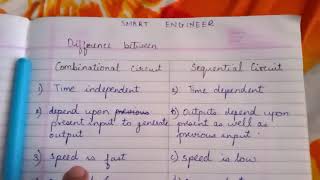 SMART ENGINEER
Difference between
Combinational Circuit
Sequential Circuit
1) Time independent
a) Time dependent
2) depend upon previous
present input to generate
output
b) Outputs depend upon
present as well as
previous input
3) speed is fast
c) speed is low